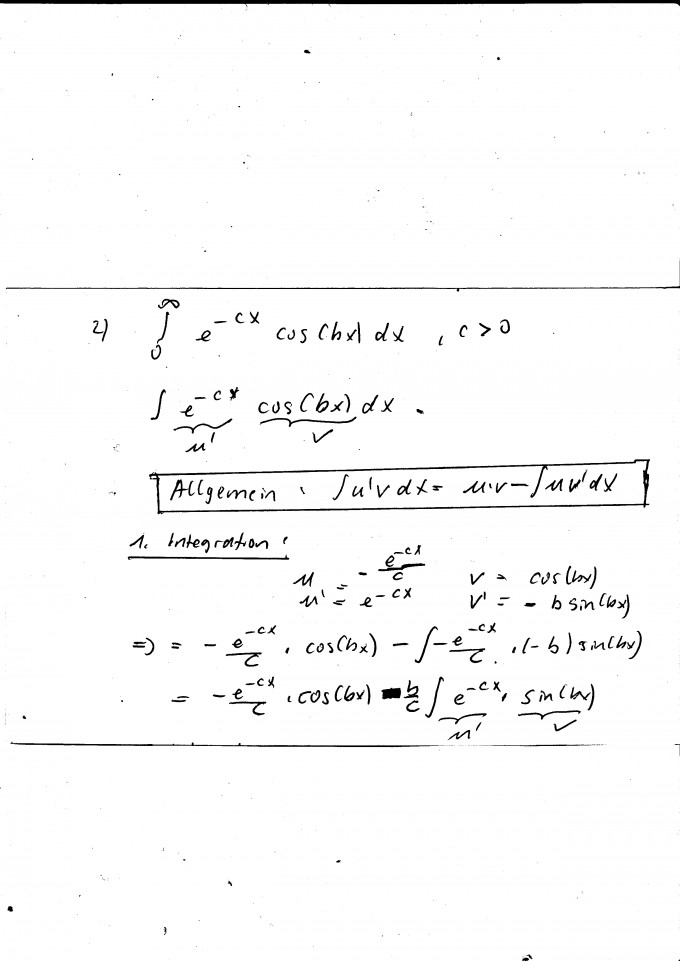 2) ∫₀^∞ e^{-cx} cos(bx) dx , c > 0
∫ e^{-cx} cos(bx) dx .
u' v
Allgemein : ∫u'v dx = u·v - ∫uv'dx
1. Integration :
u = - e^{-cx}/c v = cos(bx)
u' = e^{-cx} v' = - b sin(bx)
=> = - e^{-cx}/c · cos(bx) - ∫ - e^{-cx}/c · (-b) sin(bx)
= - e^{-cx}/c · cos(bx) - b/c ∫ e^{-cx} · sin(bx)
u' v